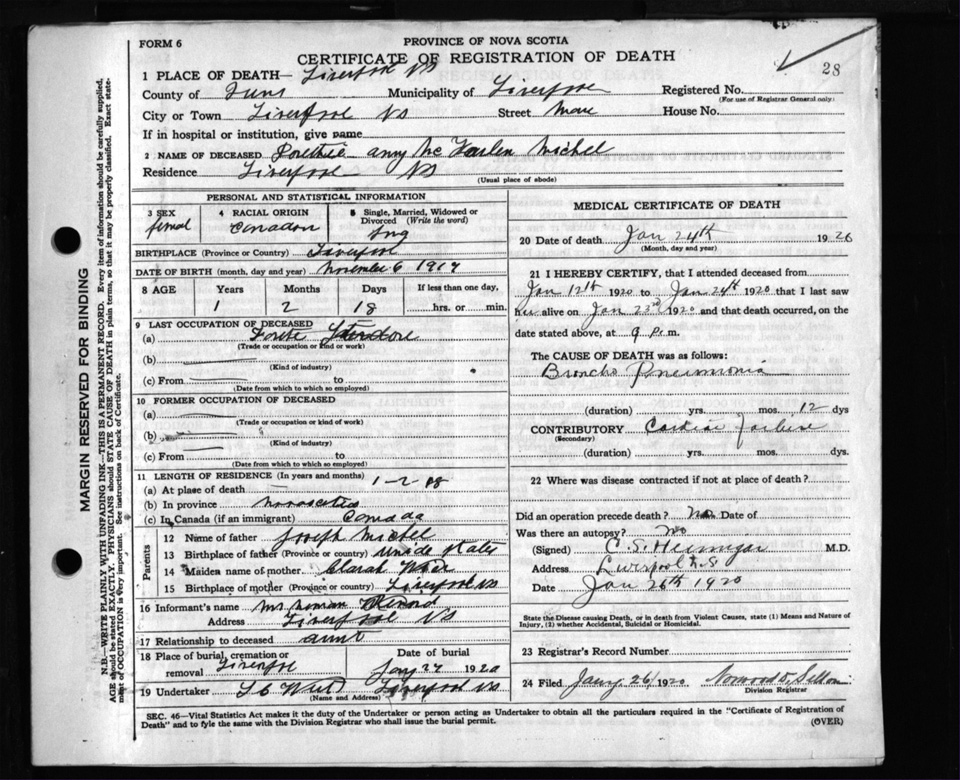 FORM 6
PROVINCE OF NOVA SCOTIA
CERTIFICATE OF REGISTRATION OF DEATH
28
1 PLACE OF DEATH— Liverpool NS
County of Municipality of Liverpool Registered No.
(For use of Registrar General only)
City or Town Liverpool NS Street House No.
If in hospital or institution, give name
2 NAME OF DECEASED anny Mc Michel
Residence Liverpool NS
(Usual place of abode)
PERSONAL AND STATISTICAL INFORMATION
3 SEX
4 RACIAL ORIGIN
5 Single, Married, Widowed or Divorced (Write the word)
femal Canadan Sng
BIRTHPLACE (Province or Country) Liverpool
DATE OF BIRTH (month, day and year) November 6 1917
8 AGE Years Months Days If less than one day,
1 2 18 hrs. or min.
9 LAST OCCUPATION OF DECEASED
(a)
(Trade or occupation or kind or work)
(b)
(Kind of industry)
(c) From to
(Date from which to which so employed)
10 FORMER OCCUPATION OF DECEASED
(a)
(Trade or occupation or kind of work)
(b)
(Kind of industry)
(c) From to
(Date from which to which so employed)
11 LENGTH OF RESIDENCE (In years and months)
(a) At place of death 1-2-18
(b) In province novascotia
(c) In Canada (if an immigrant) Canada
Parents
12 Name of father Joseph Michel
13 Birthplace of father (Province or country)
14 Maiden name of mother Clarah
15 Birthplace of mother (Province or country) Liverpool NS
16 Informant's name Mrs
Address Liverpool NS
17 Relationship to deceased aunt
18 Place of burial, cremation or removal Liverpool
Date of burial
Jany 27 1920
19 Undertaker Liverpool NS
(Name and Address)
MEDICAL CERTIFICATE OF DEATH
20 Date of death Jan 24th 1920
(Month, day and year)
21 I HEREBY CERTIFY, that I attended deceased from
Jan 12th 1920 to Jan 24th 1920 that I last saw
her alive on Jan 23rd 1920 and that death occurred, on the
date stated above, at 9 p.m.
The CAUSE OF DEATH was as follows:
Broncho Pneumonia
(duration) yrs. mos. 12 dys
CONTRIBUTORY Cardiac Failure
(Secondary)
(duration) yrs. mos. dys.
22 Where was disease contracted if not at place of death?
Did an operation precede death? No Date of
Was there an autopsy? No
(Signed) C. S. Hennigar M.D.
Address Liverpool N.S
Date Jan 26th 1920
State the Disease causing Death, or in death from Violent Causes, state (1) Means and Nature of Injury, (2) whether Accidental, Suicidal or Homicidal.
23 Registrar's Record Number
24 Filed Jany 26/ 1920
Division Registrar
SEC. 46—Vital Statistics Act makes it the duty of the Undertaker or person acting as Undertaker to obtain all the particulars required in the "Certificate of Registration of
Death" and to fyle the same with the Division Registrar who shall issue the burial permit.
(OVER)
MARGIN RESERVED FOR BINDING
N.B.—WRITE PLAINLY WITH UNFADING INK—THIS IS A PERMANENT RECORD. Every item of information should be carefully supplied,
AGE should be stated EXACTLY. PHYSICIANS should STATE CAUSE OF DEATH in plain terms, so that it may be properly classified. Exact state-
ment of OCCUPATION is very important. See instructions on back of Certificate.